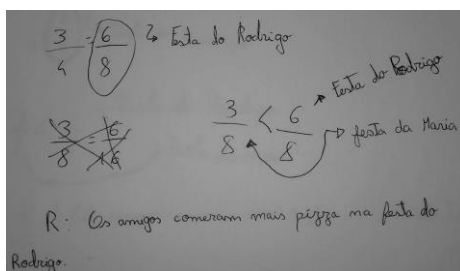 3/4 = 6/8 ↳ Festa do Rodrigo
3/8 = 6/16
3/8 < 6/8 → Festa do Rodrigo
→ festa da Maria
R: Os amigos comeram mais pizza na festa do
Rodrigo.